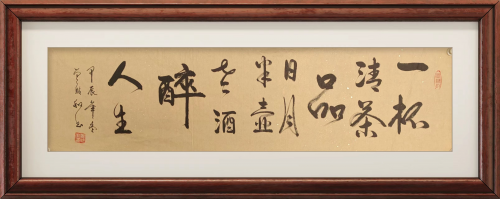 一杯
清茶
品
日月
半壶
老酒
醉
人生
甲辰年冬